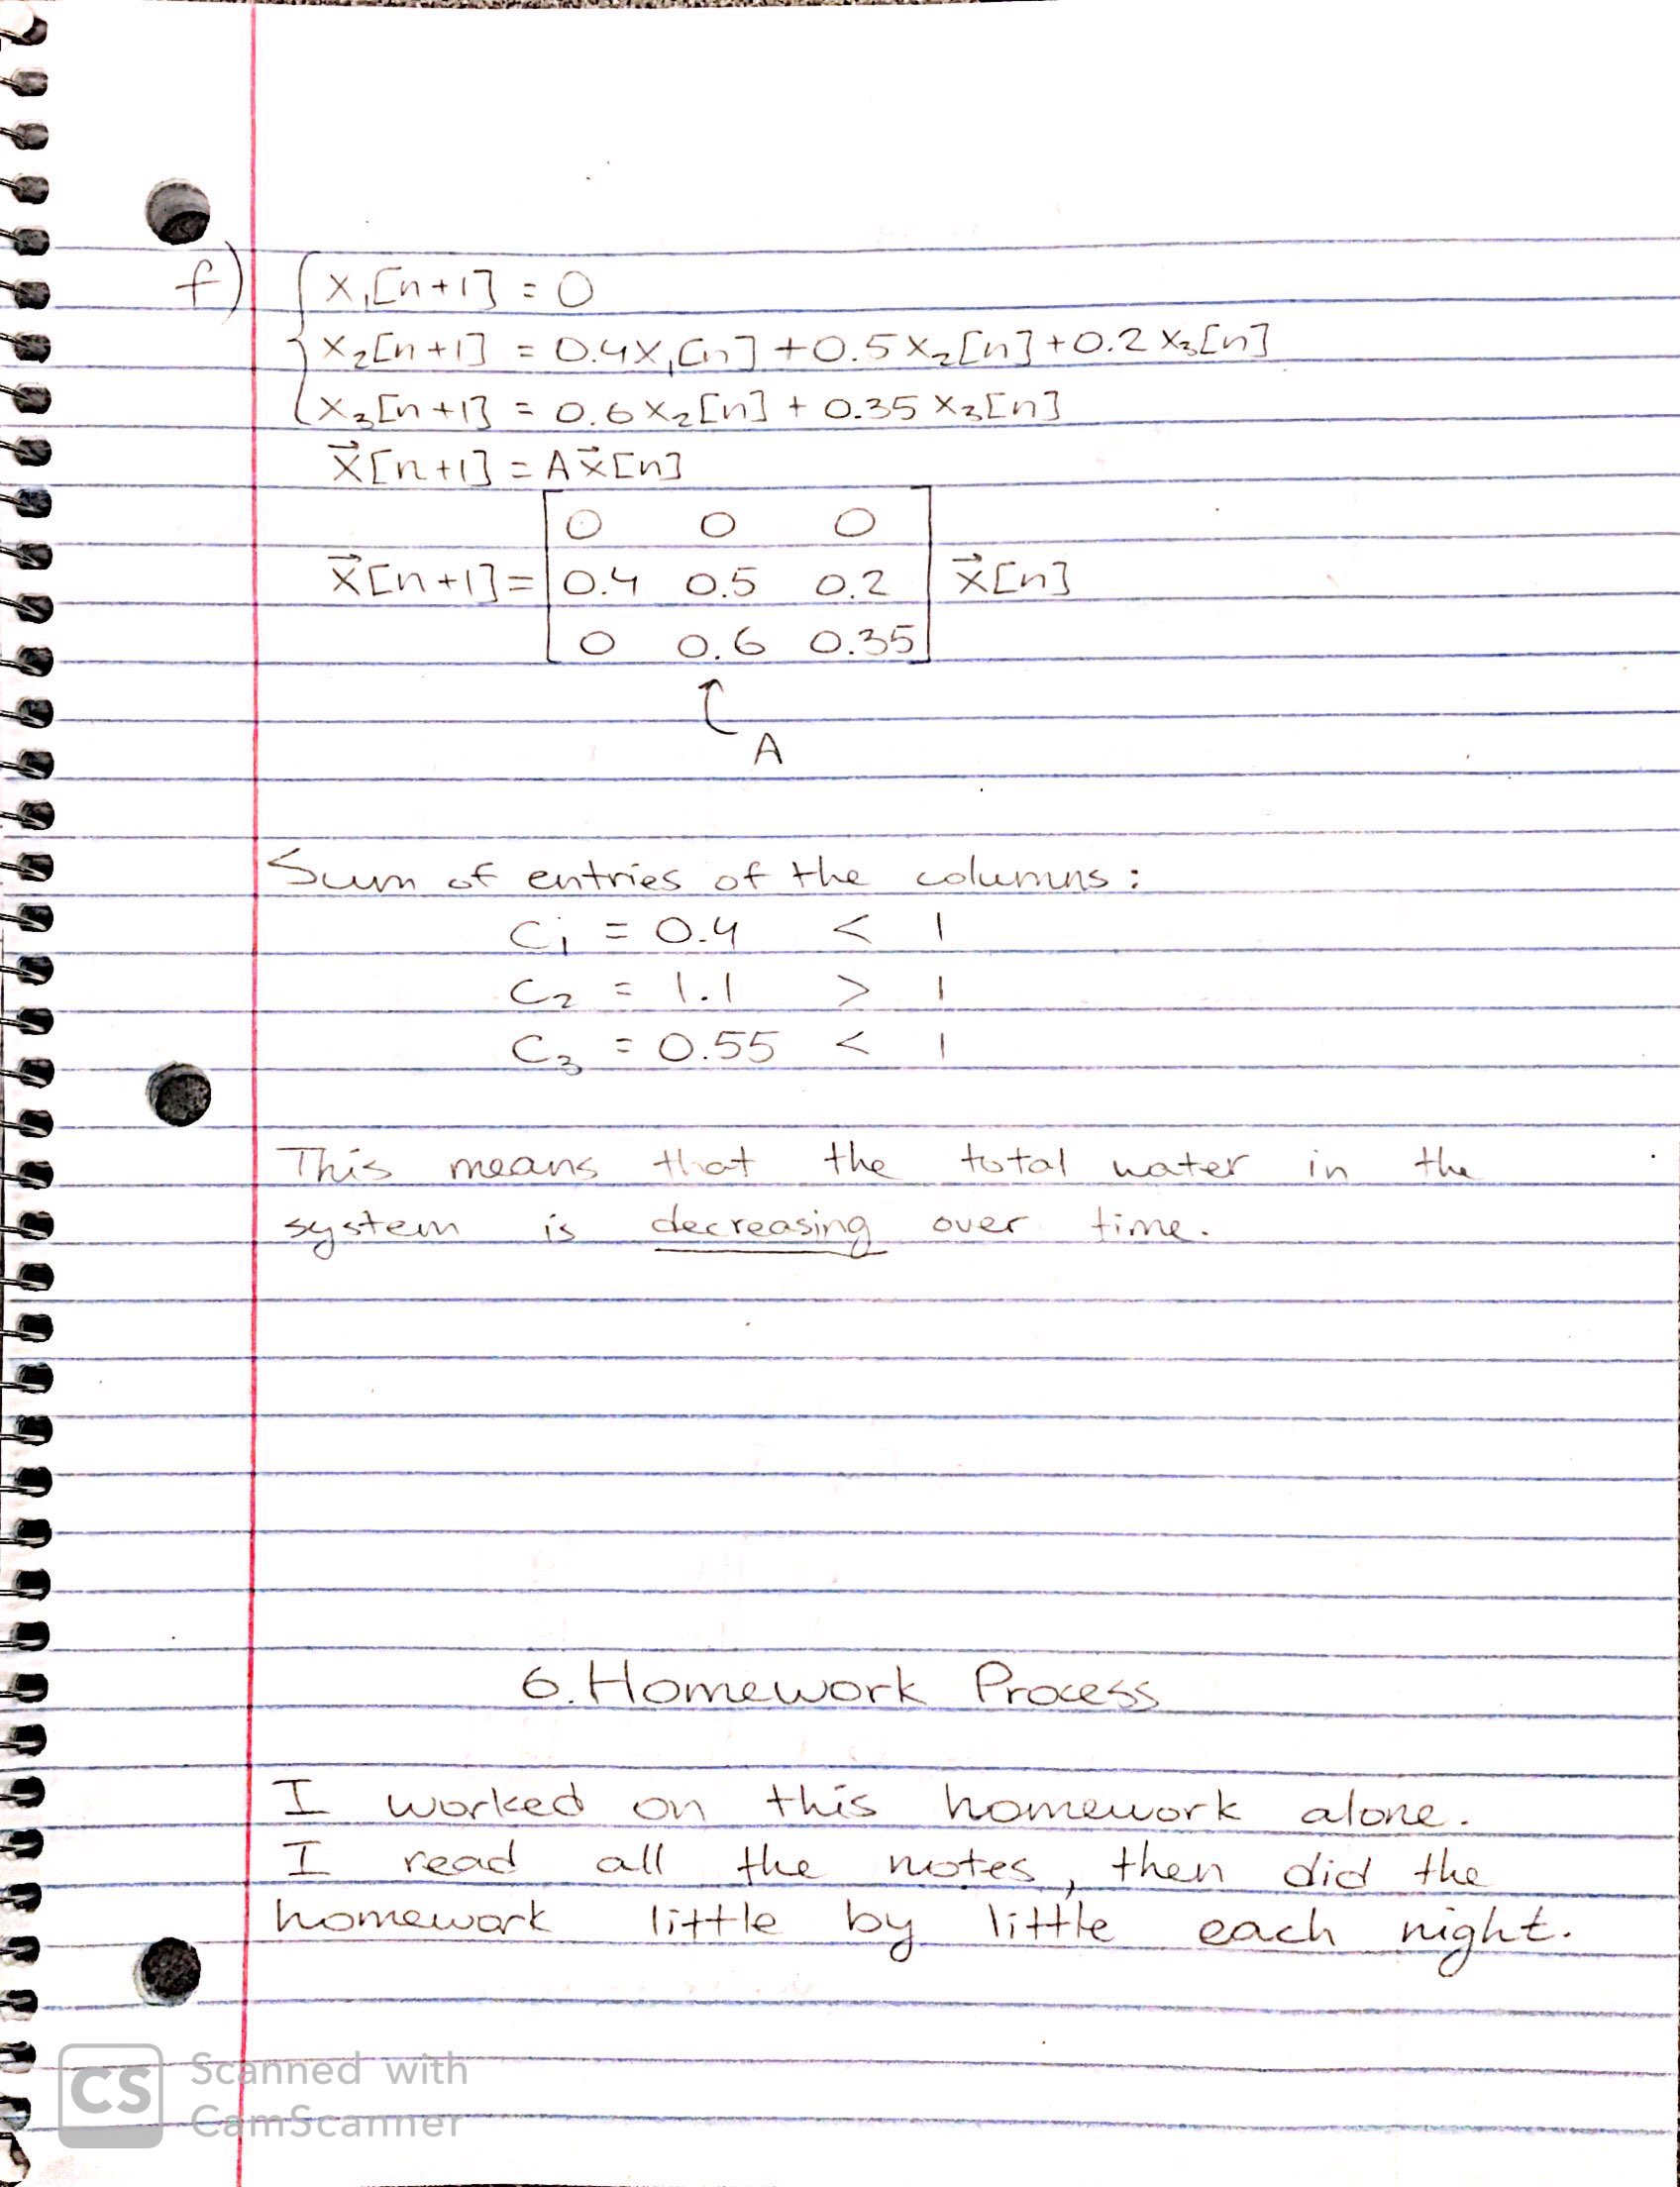 f) x₁[n+1] = 0
x₂[n+1] = 0.4x₁[n] + 0.5x₂[n] + 0.2x₃[n]
x₃[n+1] = 0.6x₂[n] + 0.35x₃[n]
x⃗[n+1] = Ax⃗[n]
0 0 0
x⃗[n+1] = 0.4 0.5 0.2 x⃗[n]
0 0.6 0.35
A
Sum of entries of the columns:
C₁ = 0.4 < 1
C₂ = 1.1 > 1
C₃ = 0.55 < 1
This means that the total water in the
system is decreasing over time.
6. Homework Process
I worked on this homework alone.
I read all the notes, then did the
homework little by little each night.
CS Scanned with
CamScanner